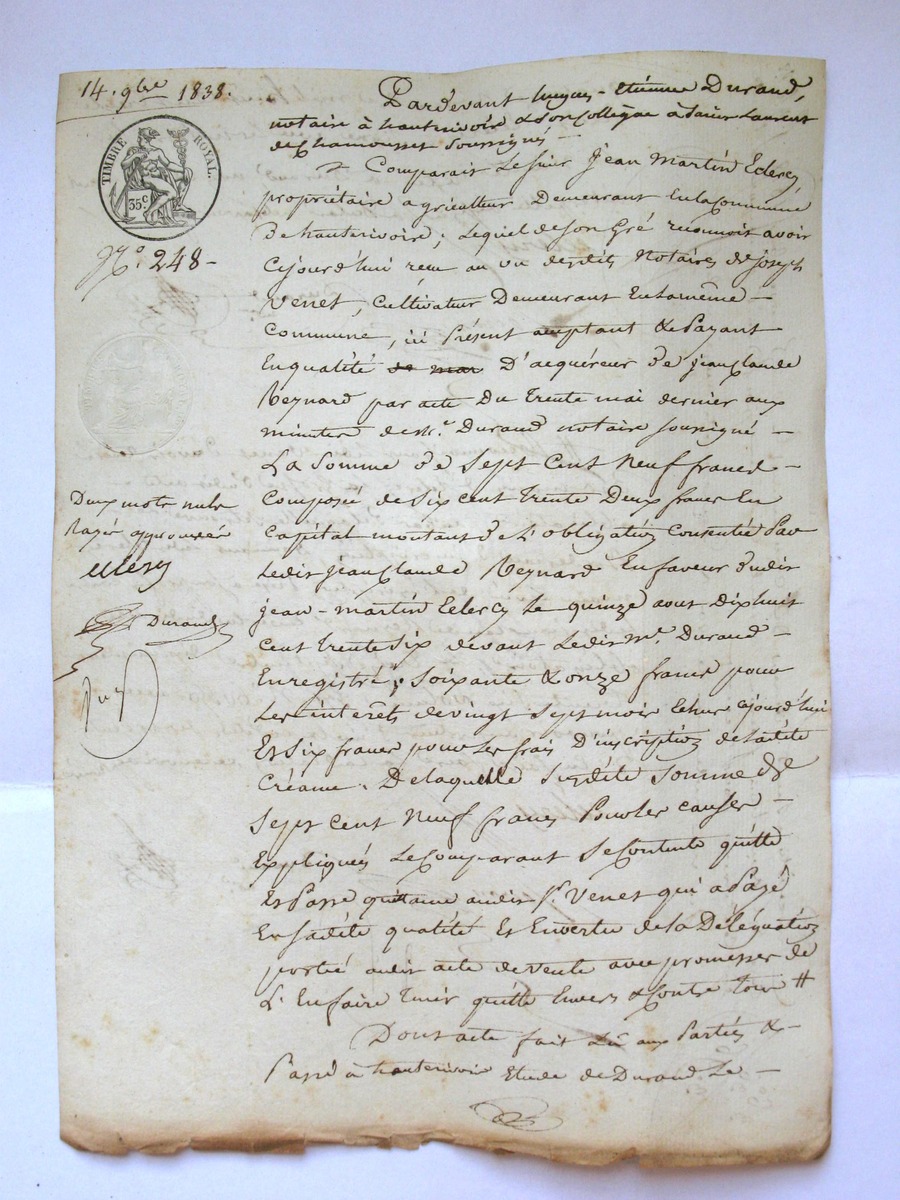 14. 9bre 1838.
TIMBRE ROYAL.
35 c.
No. 248 -
Deux mots nuls
rayés approuvés
Durand
Pardevant hugues - etienne Durand,
notaire à hauterivoire & son collègue à Saint Laurent
de Chamousset soussignés
Comparait Le Sieur Jean Martin Eclercy
propriétaire agriculteur Demeurant En la Commune
De hauterivoire; Lequel de son Gré reconnoit avoir
Cejourd'hui reçu au vu desdits Notaires de Joseph
Venet, Cultivateur Demeurant En la même -
Commune, ici Présent acceptant & Payant
En qualité D'acquéreur de jean Claude
Reynard par acte Du Trente mai dernier aux
minutes de Me. Durand notaire soussigné -
La Somme de Sept Cent Neuf francs -
Composée de Six Cent Trente Deux francs En
Capital montant de L'obligation Consentie Par
Ledit Jean Claude Reynard En faveur dudit
jean - martin Eclercy le quinze aout Dix huit
Cent Trente Six devant Ledit Me. Durand -
Enregistré; Soixante & onze francs pour
Les interêts de vingt Sept mois Echus cejourd'hui
Et Six francs pour les frais D'inscription de ladite
Créance. De laquelle Susdite Somme de
Sept Cent Neuf francs Pour les causes -
Expliquées Le Comparant Se Contente quitte
Et Passe quittance audit Sr. Venet qui a Payé
En Sadite qualité Et En vertu de la Délégation
portée audit acte de vente avec promesses de
L'En faire Tenir quitte Envers & Contre Tous #
Dont acte fait Lu aux Parties & -
Passé à hauterivoire Etude de Durand Le -